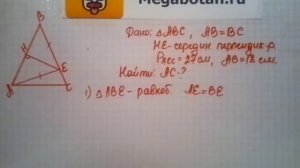 Megabotan.ru
Дано: △ABC, AB=BC
HE-середин перпендик-р.
P_AEC = 27см, AB=18 см.
Найти: AC-?
1) △ABE - равноб. AE=BE
B
H
E
A
C